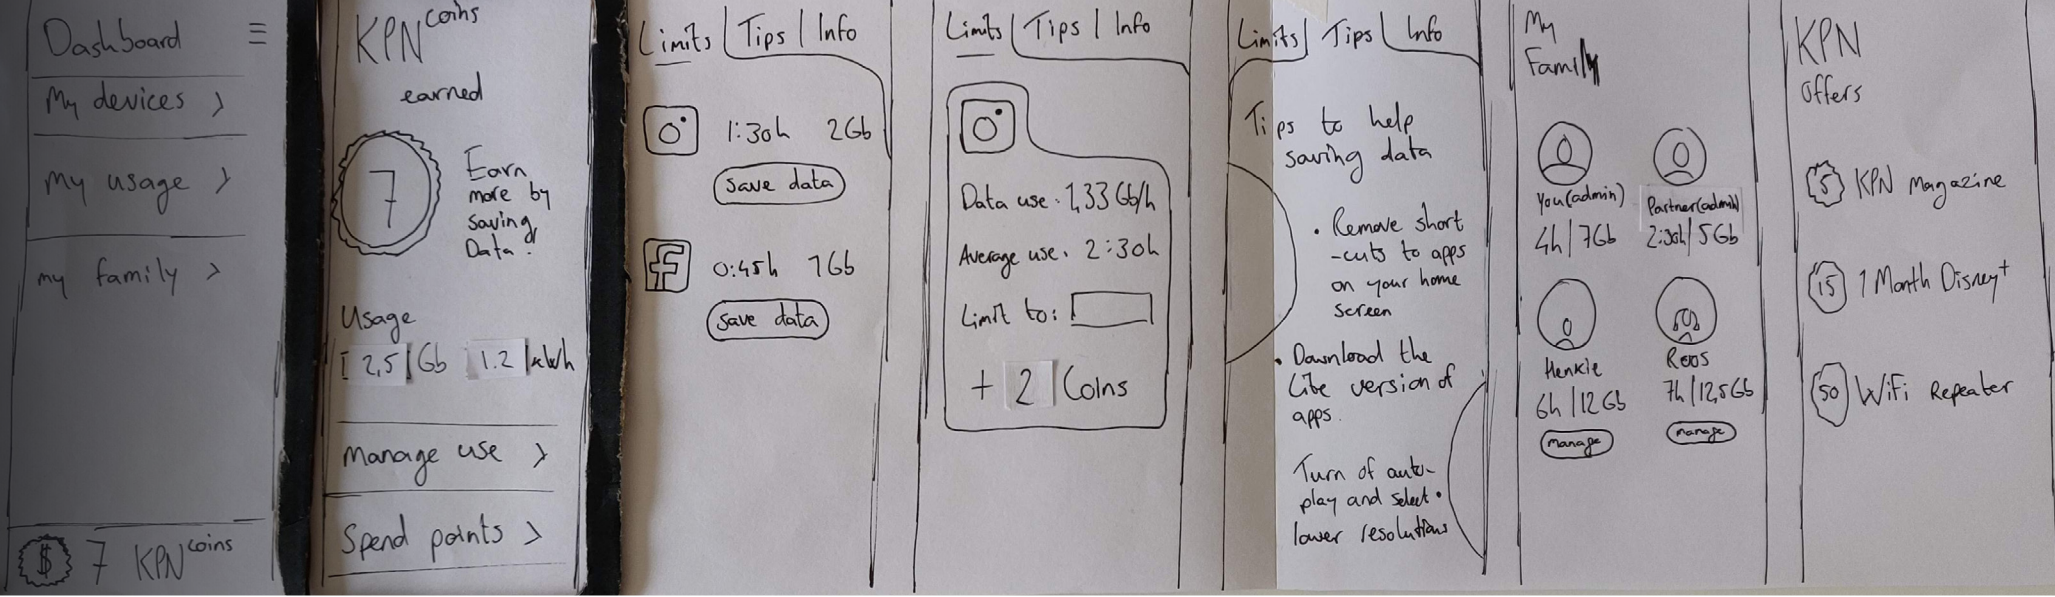 Dashboard
My devices >
My usage >
my family >
$ 7 KPN coins
KPN coins
earned
7
Earn
more by
saving
Data!
Usage
2,5 Gb 1.2 kWh
Manage use >
Spend points >
Limits | Tips | Info
1:30h 2Gb
save data
f 0:45h 1Gb
save data
Limits | Tips | Info
Data use: 1,33 Gb/h
Average use: 2:30h
Limit to:
+ 2 Coins
Limits | Tips | Info
Tips to help
saving data
• Remove short
-cuts to apps
on your home
screen
• Download the
Lite version of
apps.
Turn of auto-
play and select •
lower resolutions
My
Family
You(admin)
4h | 7Gb
Partner(admin)
2:30h | 5Gb
Henkie
6h | 12Gb
manage
Roos
7h | 12,5Gb
manage
KPN
Offers
5 KPN Magazine
15 1 Month Disney+
50 WiFi Repeater